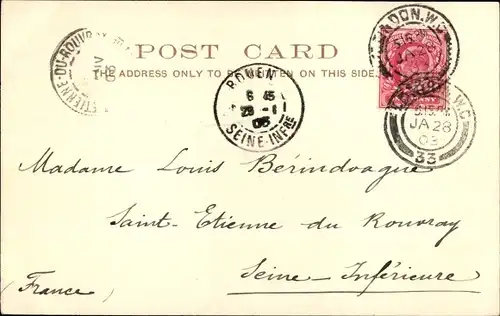 POST CARD
THE ADDRESS ONLY TO BE WRITTEN ON THIS SIDE.
ETIENNE-DU-ROUVRAY
ROUEN
6 45
SEINE-INFRE
LONDON. W.C.
JA 28
W.C.
JA 28
03
33
Madame Louis Bérindoague
Saint-Etienne du Rouvray
Seine-Inférieure
(France)